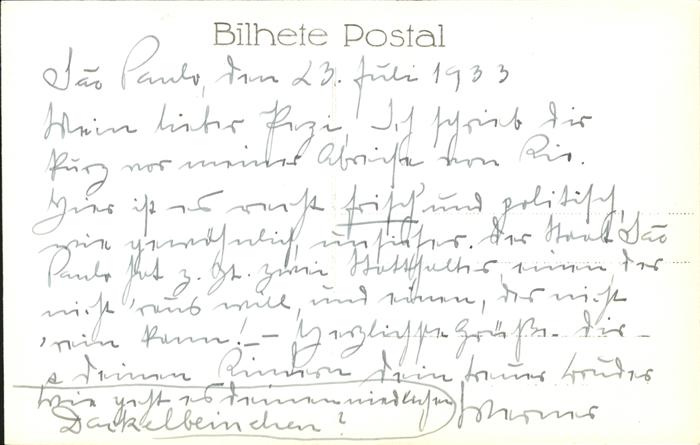 Bilhete Postal
São Paulo, den 23. Juli 1933
Mein lieber Pezi, Ich schrieb dir
kurz vor meiner Abreise von Rio.
Hier ist es recht frisch und politisch,
wie gewöhnlich, unsicher. Der Staat São
Paulo hat z. Zt. zwei Statthalter, einen, der
nicht 'raus will, und einen, der nicht
'rein kann! — Herzlichste Grüße dir
& deinen Kindern dein treuer Bruder
Werner
Wie geht es deinem niedlichen
Dackelbeinchen?